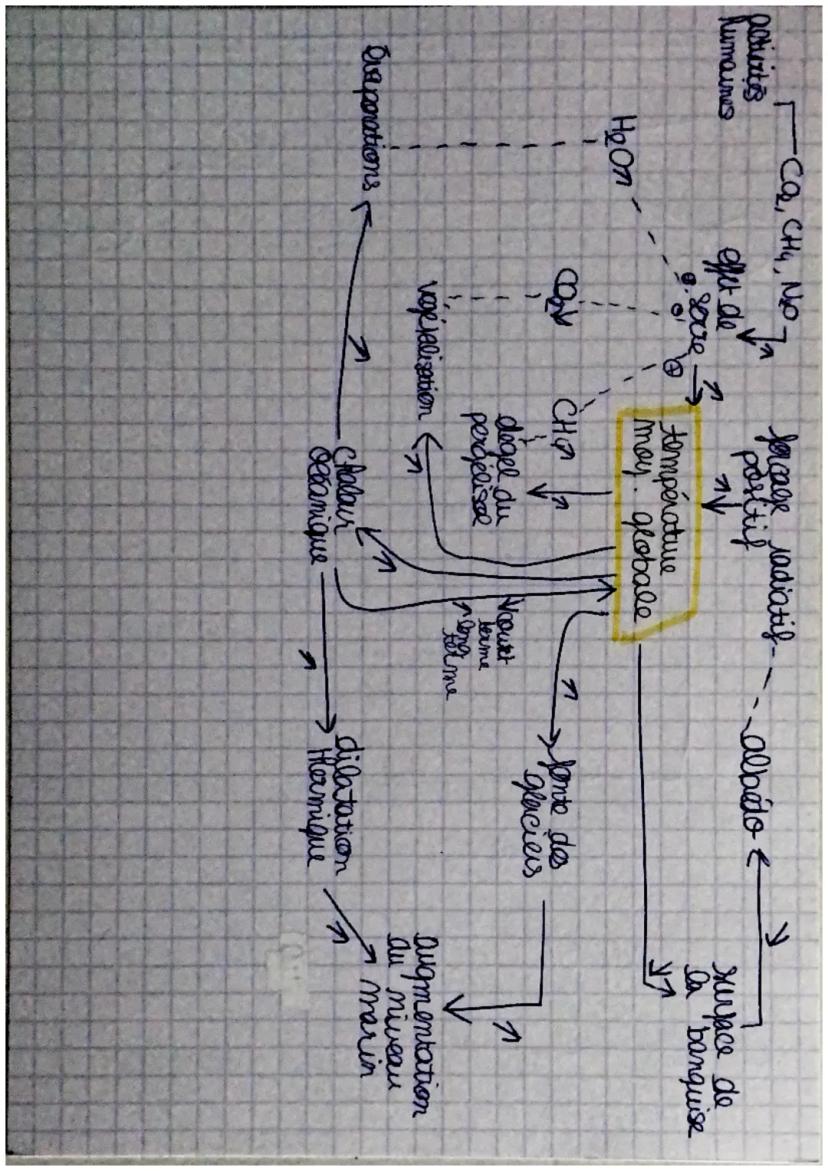 activités
humaines
CO2, CH4, N2O
↗
forçage radiatif
positif
↗
albédo
↘
surface de
la banquise
effet de
serre
↗
H2O↗
⊕
⊖
⊕
température
moy. globale
CO2↘
CH4↗
dégel du
pergélisol
↗
végétalisation
↗
↘court
terme
↗long
terme
↗
fonte des
glaciers
↗
Évaporations
↗
chaleur
océanique
↗
↗
dilatation
thermique
↗
augmentation
du niveau
marin